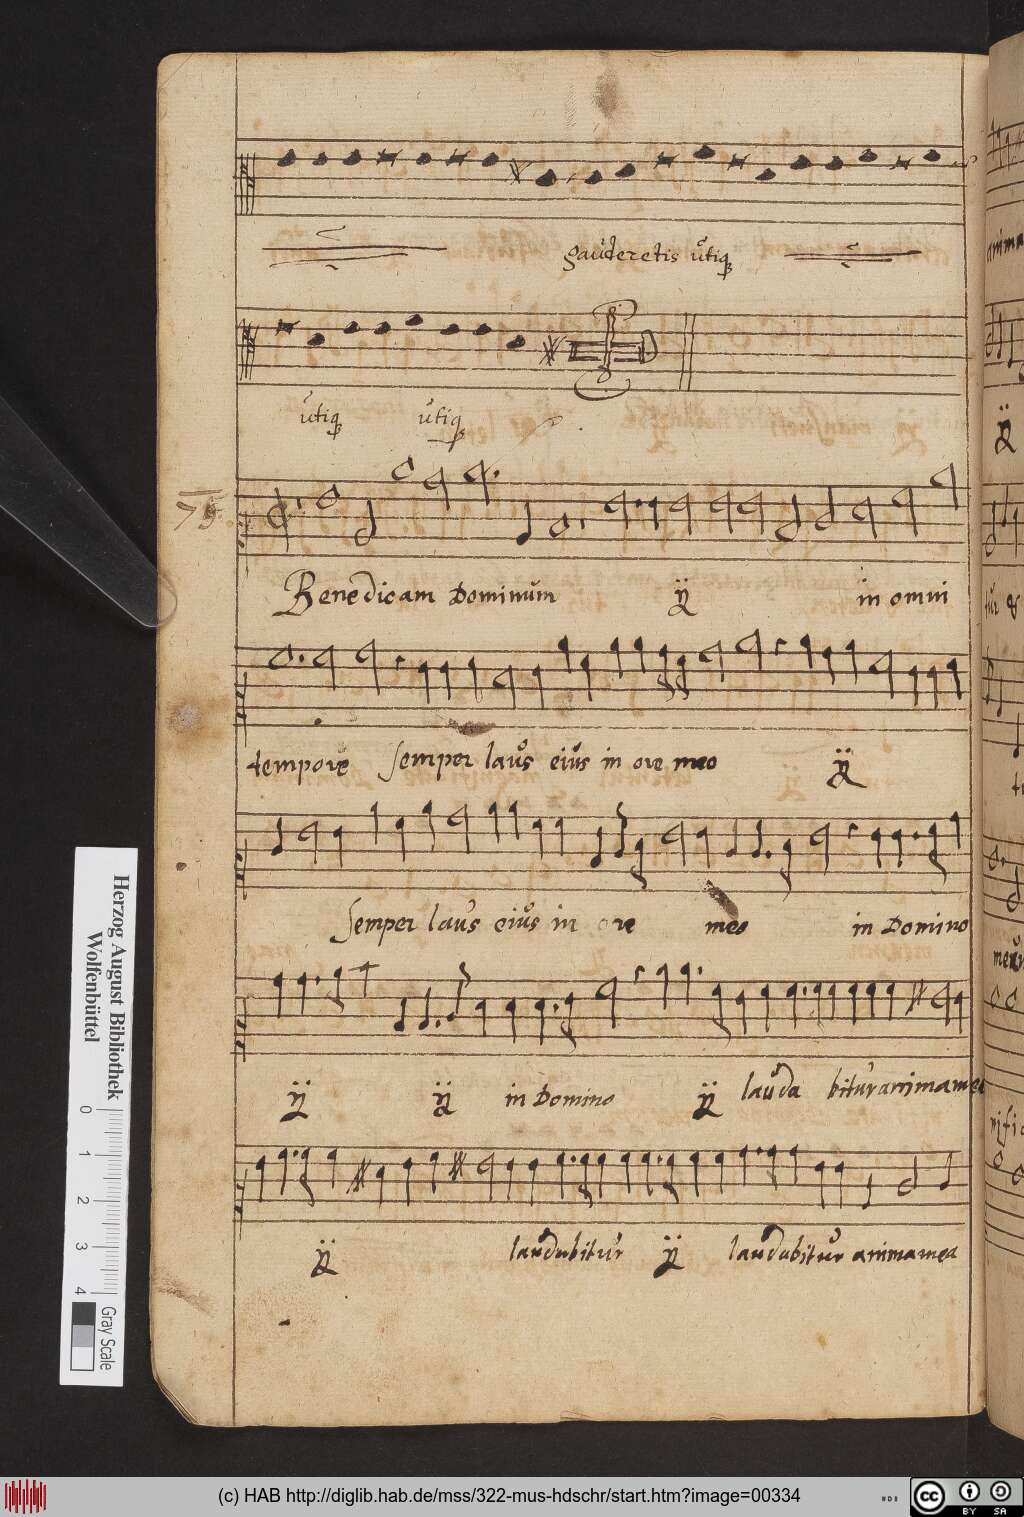 gauderetis utiq
utiq utiq
75.
Benedicam Dominum ij in omni
tempore semper laus eius in ore meo ij
semper laus eius in ore meo in Domino
ij ij in Domino ij lauda bitur anima mea
ij laudabitur ij laudabitur anima mea
anima
ij
tur &
Herzog August Bibliothek
Wolfenbüttel
0 1 2 3 4
Gray Scale
(c) HAB http://diglib.hab.de/mss/322-mus-hdschr/start.htm?image=00334
cc BY SA